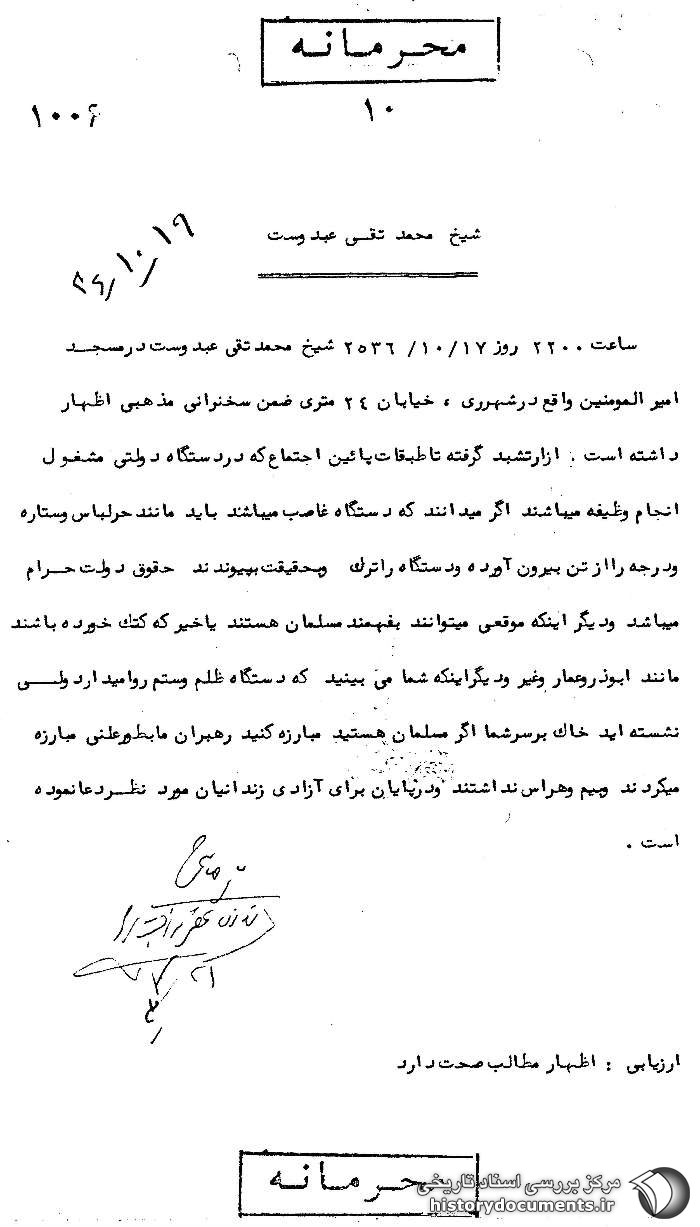 محرمانه
۱۰
۱۰۰۶
شیخ محمد تقی عبدوست
۳۶/۱۰/۱۹
ساعت ۲۲۰۰ روز ۱۰/۱۷/ ۲۵۳۶ شیخ محمدتقی عبدوست درمسجد
امیرالمومنین واقع درشهرری ، خیابان ۲۴ متری ضمن سخنرانی مذهبی اظهار
داشته است : ازارتشبد گرفته تاطبقات پائین اجتماع که دردستگاه دولتی مشغول
انجام وظیفه میباشند اگر میدانند که دستگاه غاصب میباشد باید مانند حرلباس وستاره
ودرجه راازتن بیرون آورده ودستگاه راترک وبحقیقت بپیوندند حقوق دولت حرام
میباشد ودیگر اینکه موقعی میتوانند بفهمند مسلمان هستند یاخیر که کتک خورده باشند
مانند ابوذروعمار وغیر ودیگراینکه شما می بینید که دستگاه ظلم وستم روامیداردولی
نشسته اید خاک برسرشما اگر مسلمان هستید مبارزه کنید رهبران مابطورعلنی مبارزه
میکردند وبیم وهراس نداشتند ودرپایان برای آزادی زندانیان مورد نظردعانموده
است .
ارزیابی : اظهار مطالب صحت دارد
محرمانه
مرکز بررسی اسناد تاریخی
historydocuments.ir